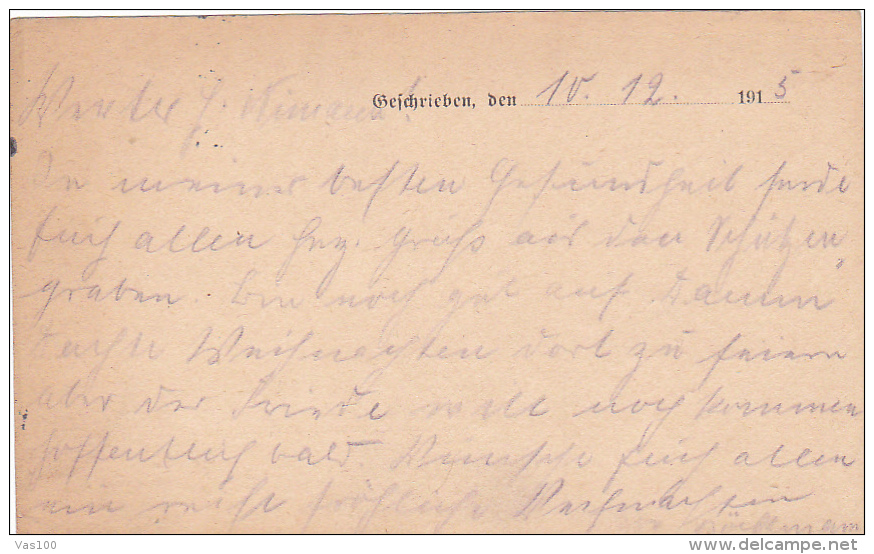 Geschrieben, den 10. 12. 1915
Werter H.
In meiner besten Gesundheit sende
Euch allen herz. Gruß aus dem Schützen
graben. Bin noch gut auf.
dachte Weihnachten dort zu feiern
aber der Friede will noch kommen
hoffentlich bald. Wünsche Euch allen
ein recht fröhliche Weihnachten
Vas100
delcampe.net